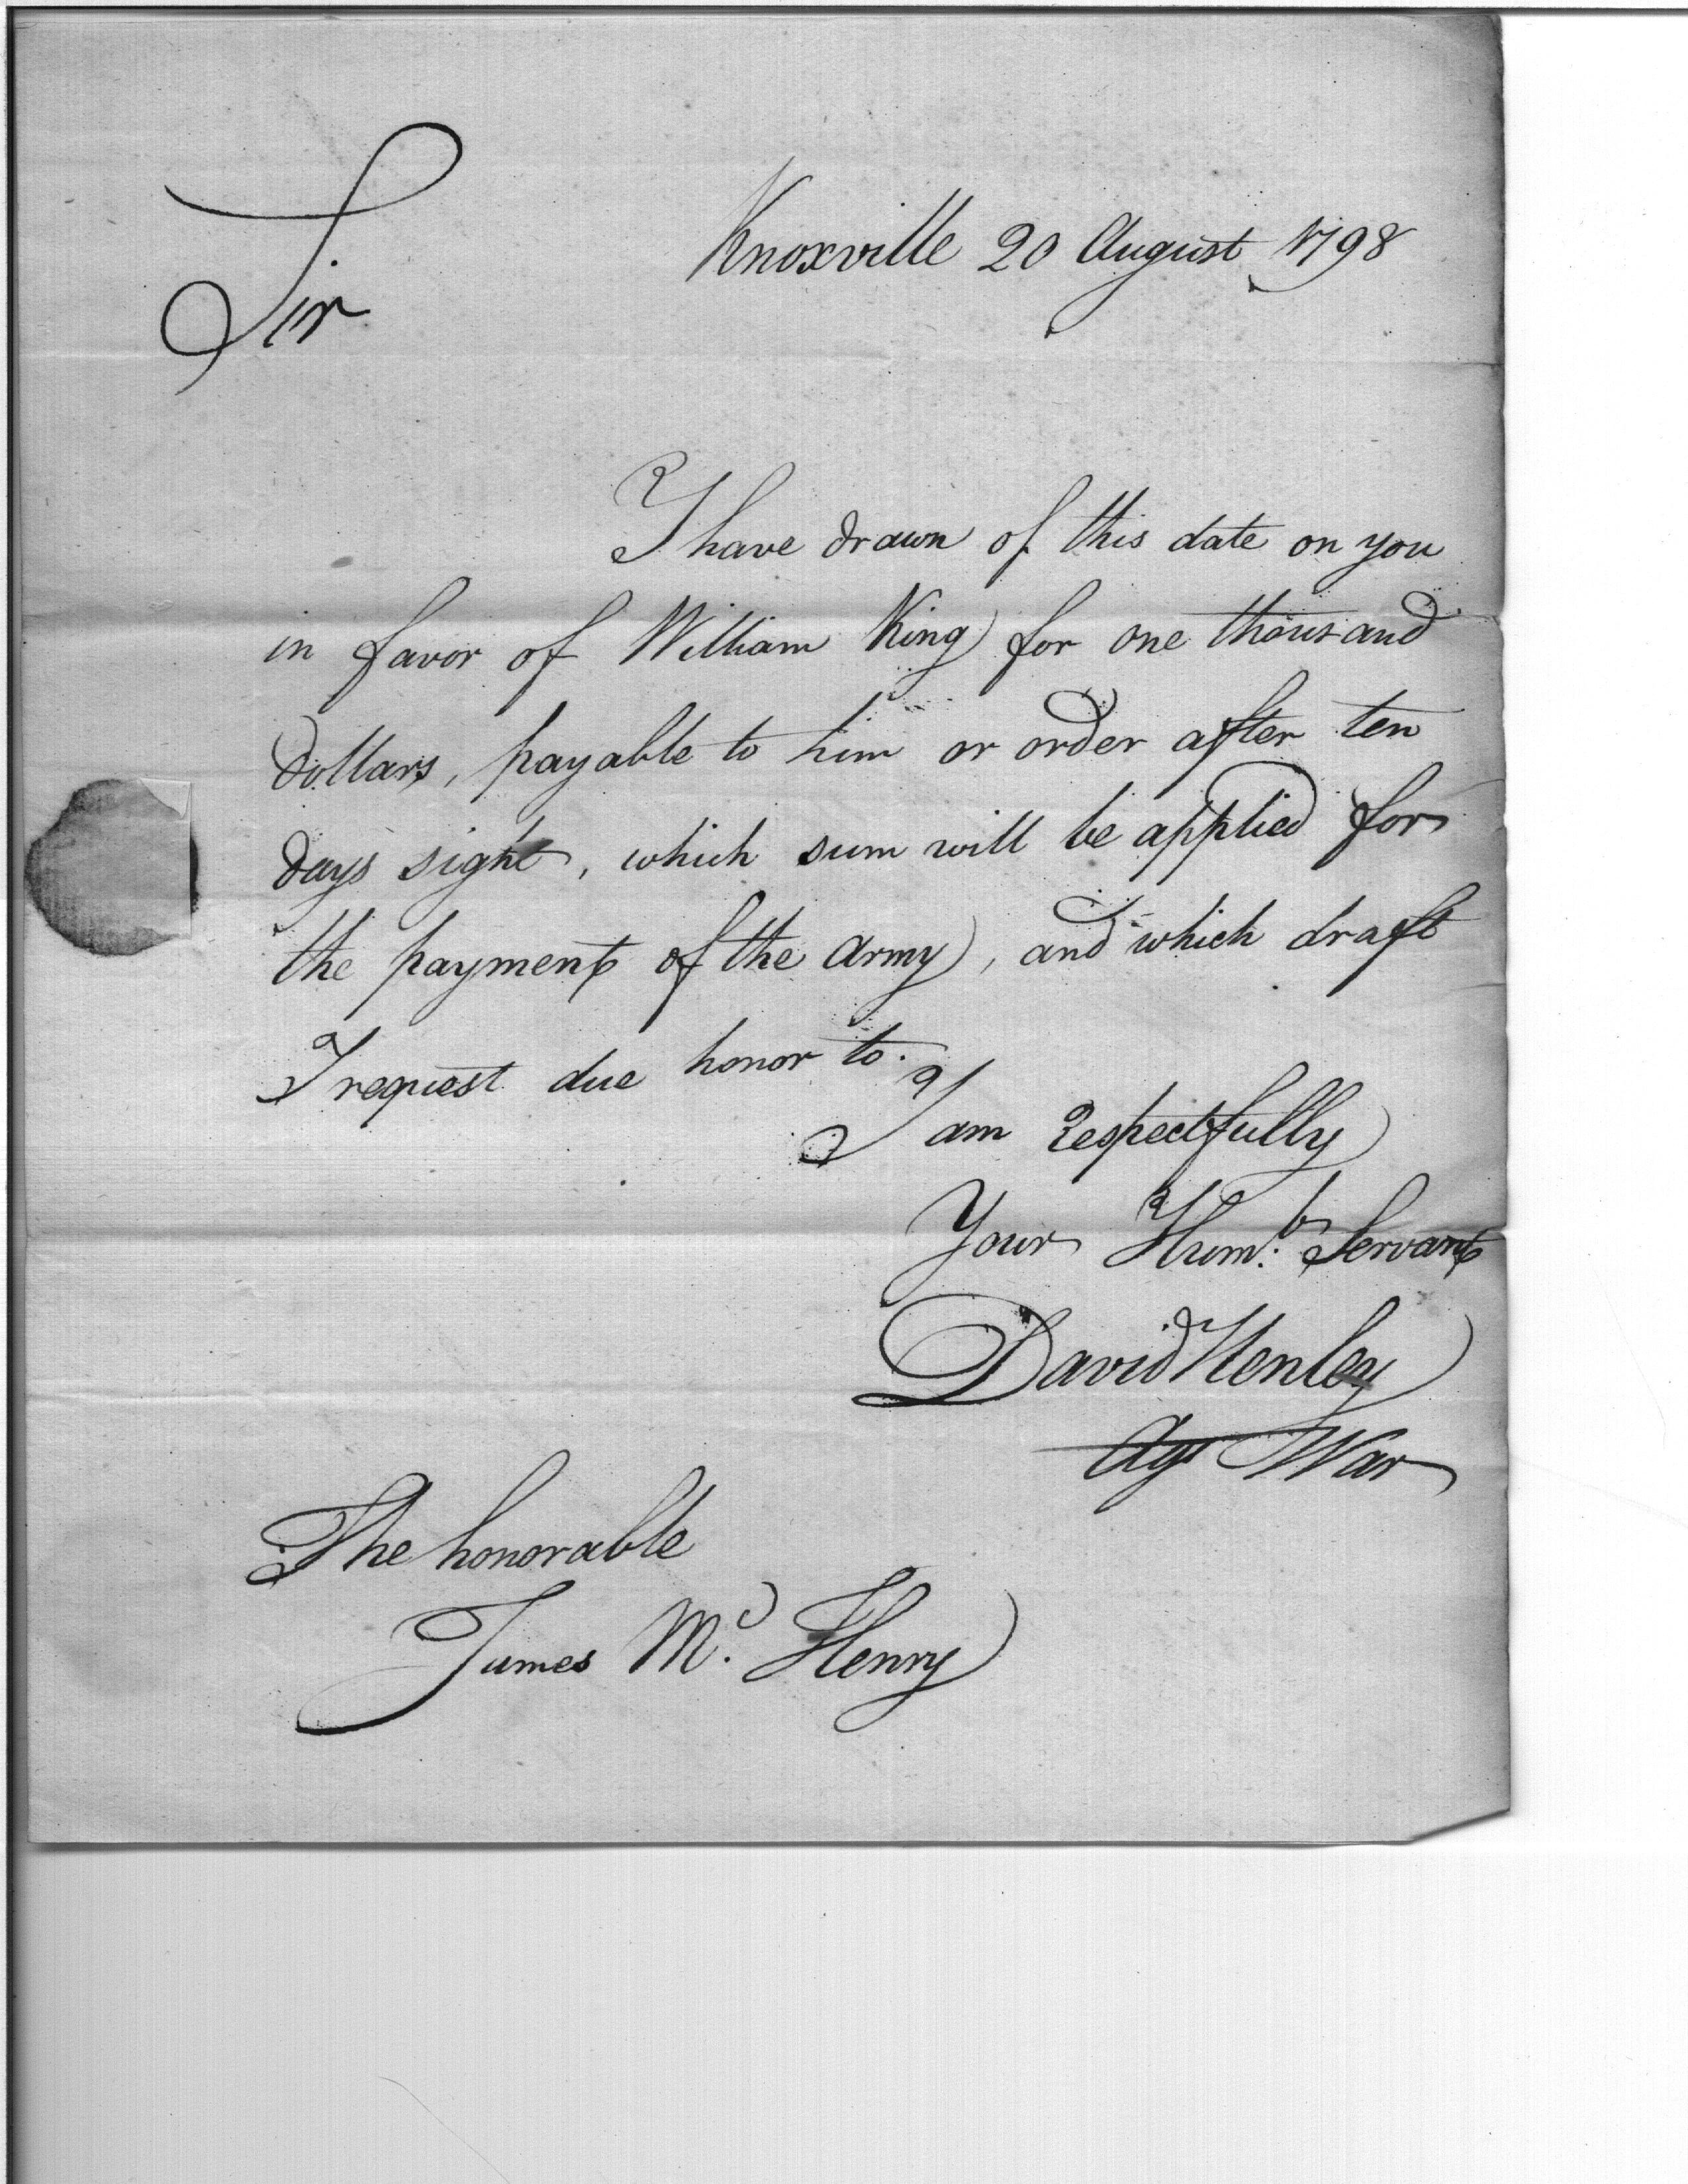 Knoxville 20 August 1798
Sir
I have drawn of this date on you
in favor of William King for one thousand
dollars, payable to him or order after ten
days sight, which sum will be applied for
the payment of the army, and which draft
I request due honor to.
I am respectfully
Your Humb. Servant
David Henley
Agt War
The honorable
James Mc. Henry